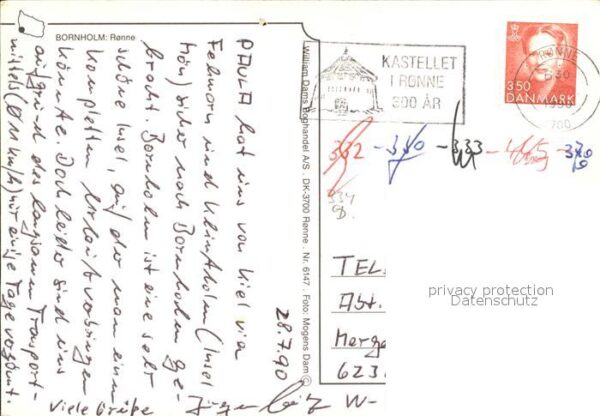 BORNHOLM: Rønne
PAULA hat uns von Kiel via
Fehmarn und Klintholm (Insel
Mön) sicher nach Bornholm ge-
bracht. Bornholm ist eine sehr
schöne Insel, auf der man einen
kompletten Urlaub verbringen
könnte. Doch leider sind uns
aufgrund des langsamen Transport-
mittels (Ø 11 km/h) nur einige Tage vergönnt.
Viele Grüße
Jürgen
28.7.90
William Dams Boghandel A/S . DK-3700 Rønne . Nr. 6147 . Foto: Mogens Dam ©
KASTELLET
I RØNNE
300 ÅR
RØNNE
1990
700
3.50
DANMARK
332 - 310 - 333 - 465 - 370
334
TEL
Abt.
Merge
623
W-
privacy protection
Datenschutz